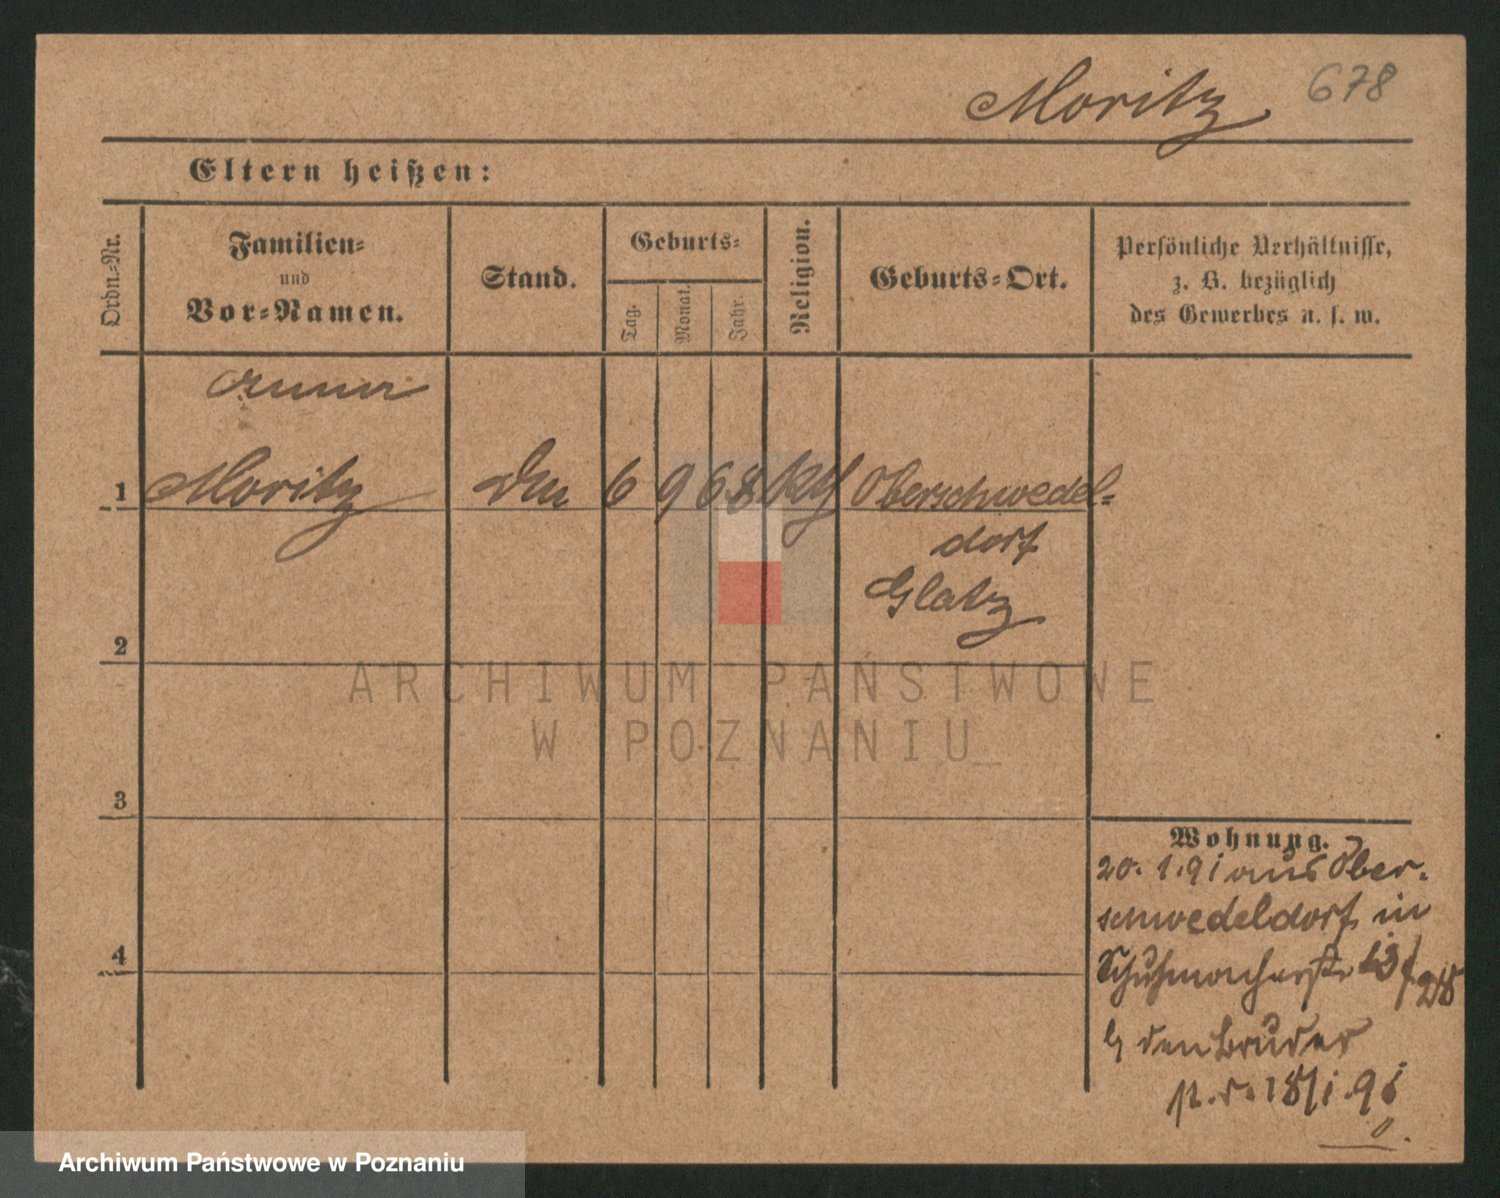 Moritz 678
Eltern heißen:
Ordn.-Nr.
Familien-
und
Vor-Namen.
Stand.
Geburts-
Tag.
Monat.
Jahr.
Religion.
Geburts-Ort.
Persönliche Verhältnisse,
z. B. bezüglich
des Gewerbes u. s. w.
Anna
1 Moritz 6 9 68 Oberschwedel-
dorf
Glatz
2
3
4
Wohnung.
20. 1. 91 aus Ober-
schwedeldorf in
Schuhmacherstr 13
den Bruder
18/1. 91
ARCHIWUM PAŃSTWOWE
W POZNANIU_
Archiwum Państwowe w Poznaniu